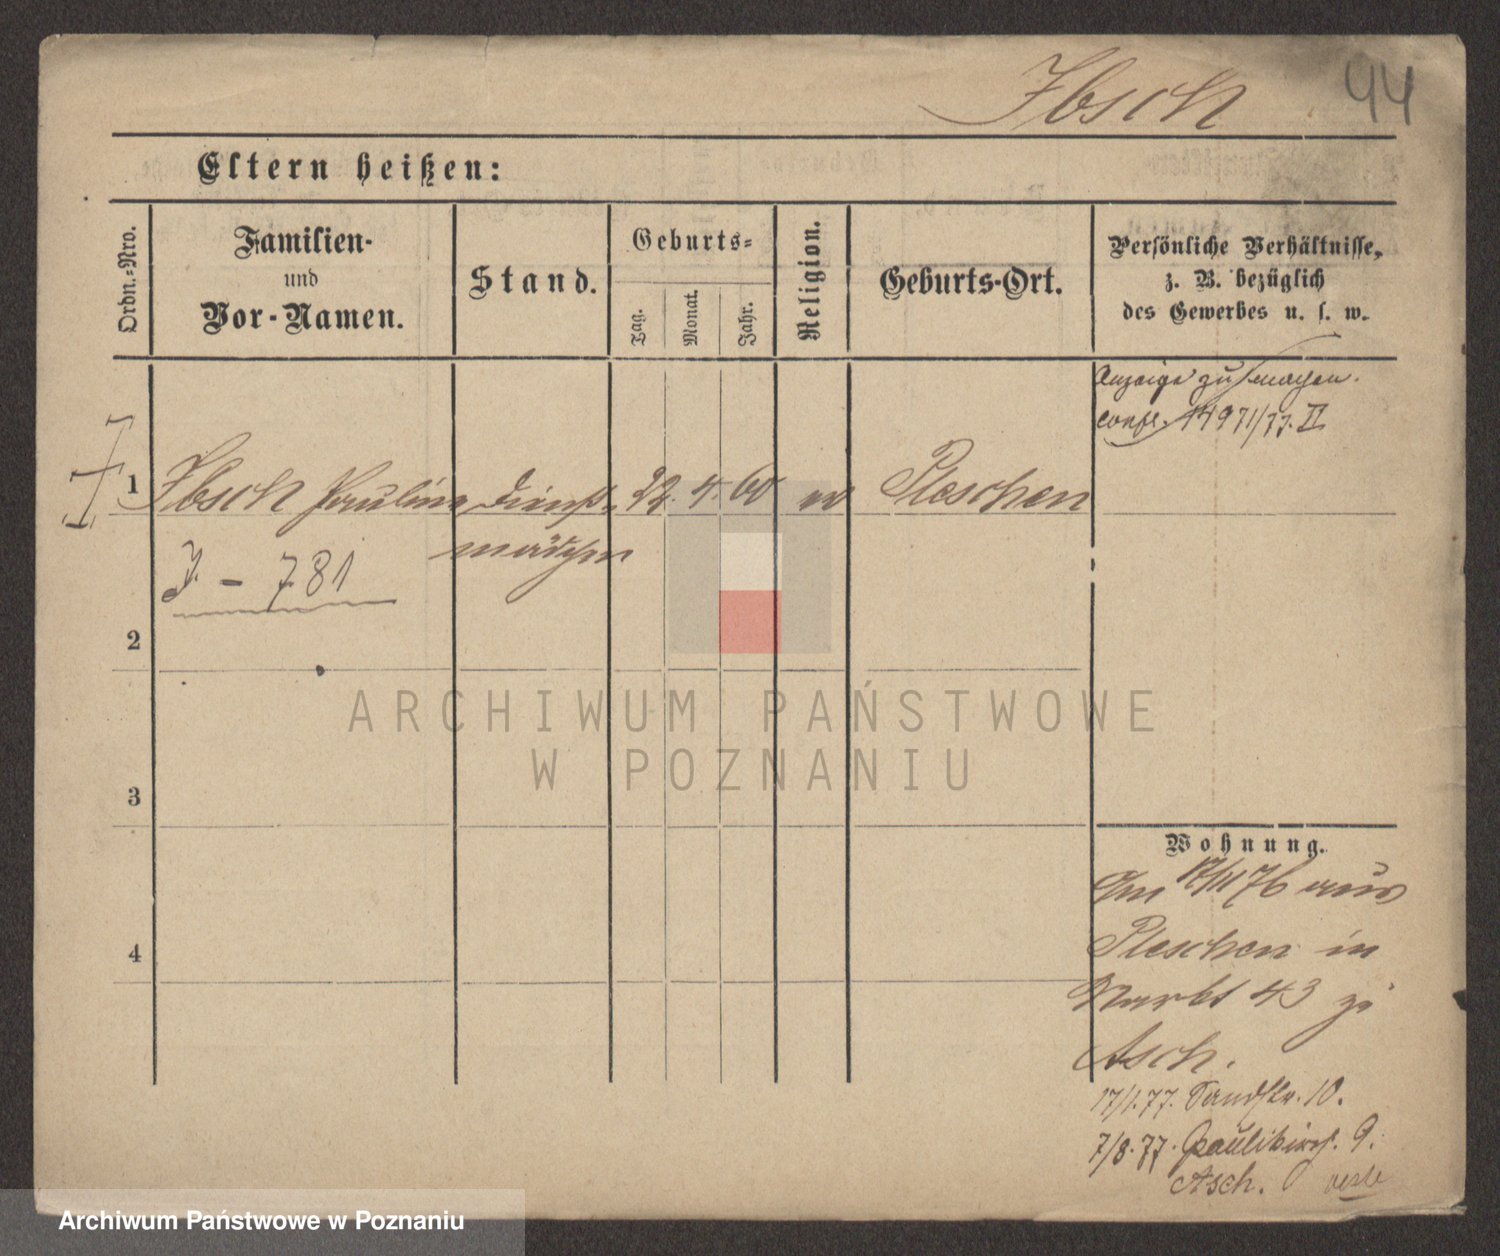 Ibsch
44
Eltern heißen:
Ordn.=Nro.
Familien-
und
Vor-Namen.
Stand.
Geburts=
Tag.
Monat.
Jahr.
Religion.
Geburts-Ort.
Persönliche Verhältnisse,
z. B. bezüglich
des Gewerbes u. s. w.
Anzeige zu machen.
confr. 14971/77. II
1 Ibsch Pauline Dienst- 22. 4. 60 ev Pleschen
mädchen
J. - 781
2
3
4
Wohnung.
Am 17/11 76 aus
Pleschen in
Markt 43 zu
Asch.
17/1.77. Sandstr. 10.
7/8.77. Paulikirch. 9.
Asch.
ARCHIWUM PAŃSTWOWE
W POZNANIU
Archiwum Państwowe w Poznaniu